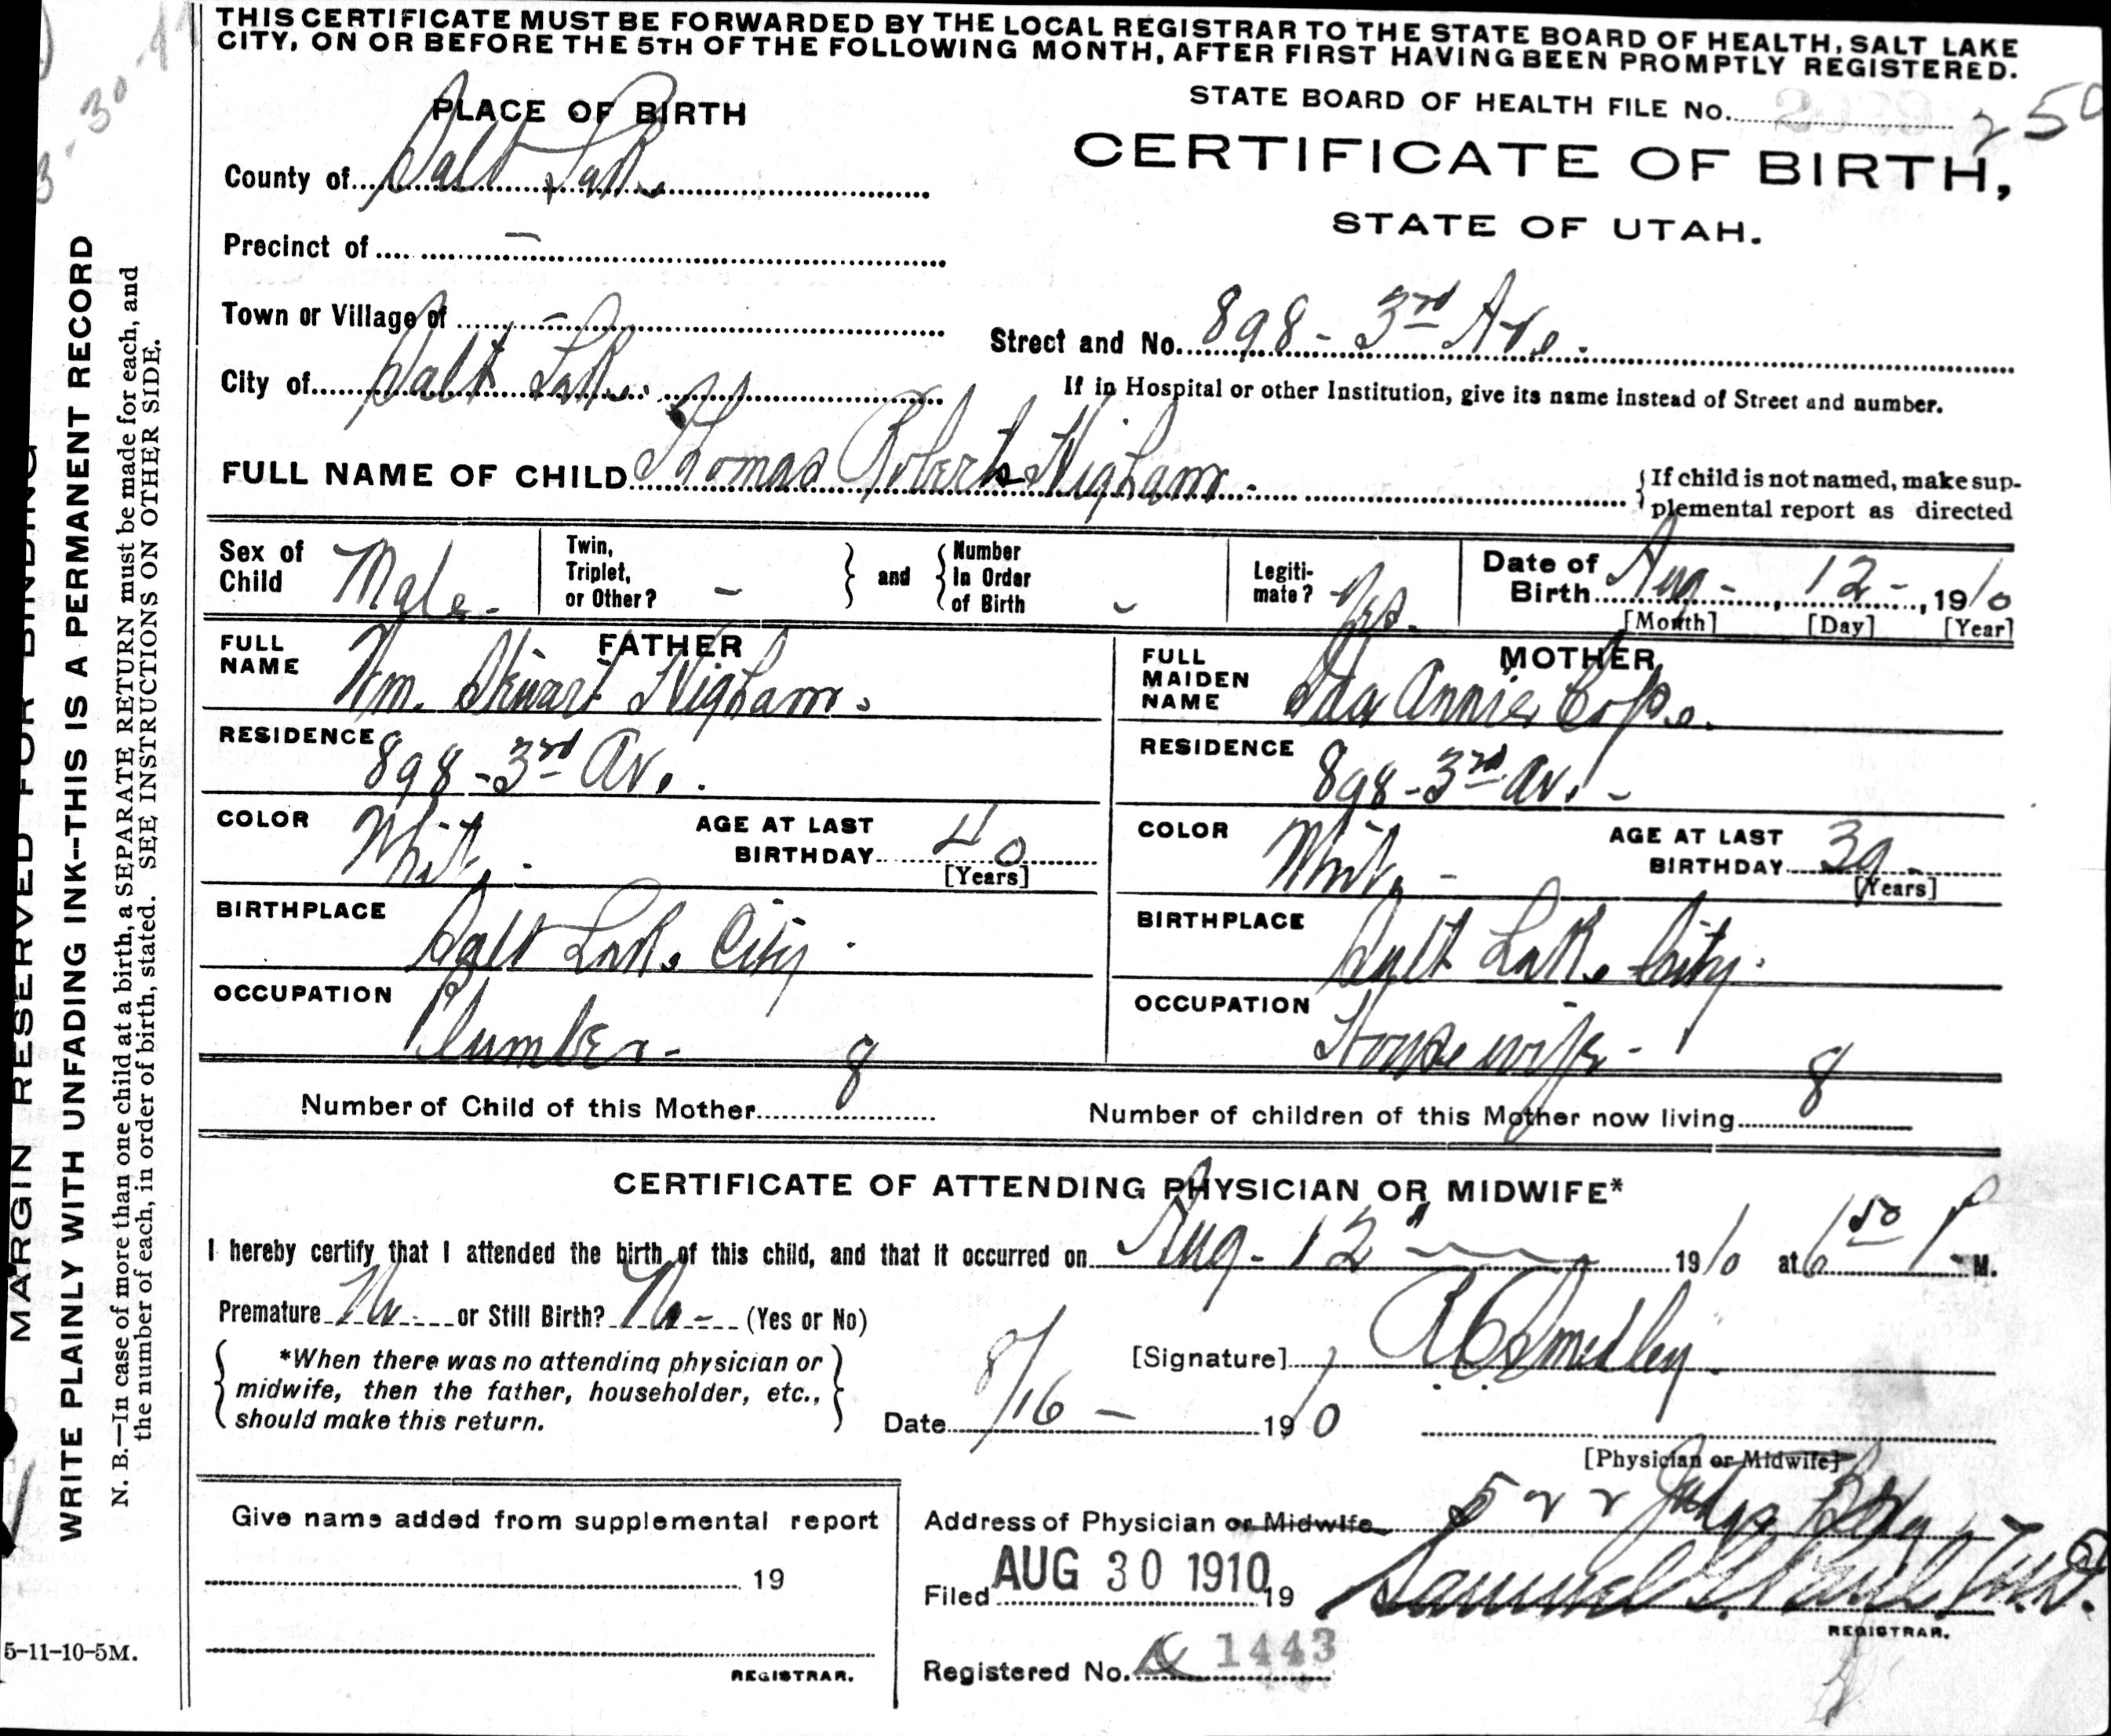 THIS CERTIFICATE MUST BE FORWARDED BY THE LOCAL REGISTRAR TO THE STATE BOARD OF HEALTH, SALT LAKE
CITY, ON OR BEFORE THE 5TH OF THE FOLLOWING MONTH, AFTER FIRST HAVING BEEN PROMPTLY REGISTERED.
STATE BOARD OF HEALTH FILE No. 250
PLACE OF BIRTH
CERTIFICATE OF BIRTH,
STATE OF UTAH.
County of Salt Lake
Precinct of -
Town or Village of -
Street and No. 898 - 3rd Ave.
City of Salt Lake
If in Hospital or other Institution, give its name instead of Street and number.
FULL NAME OF CHILD Thomas Robert Higham
{If child is not named, make sup-
plemental report as directed
Sex of Child Male -
Twin, Triplet, or Other? -
} and { Number In Order of Birth -
Legiti-mate? Yes.
Date of Birth Aug - , 12 - , 1910
[Month] [Day] [Year]
FATHER
FULL NAME Wm. Stewart Higham.
RESIDENCE 898 - 3rd Av.
COLOR White - AGE AT LAST BIRTHDAY 40 [Years]
BIRTHPLACE Salt Lake City
OCCUPATION Plumber -
MOTHER
FULL MAIDEN NAME Ida Annie
RESIDENCE 898 - 3rd Av. -
COLOR White - AGE AT LAST BIRTHDAY 39 [Years]
BIRTHPLACE Salt Lake City.
OCCUPATION Housewife -
Number of Child of this Mother 8
Number of children of this Mother now living 8
CERTIFICATE OF ATTENDING PHYSICIAN OR MIDWIFE*
I hereby certify that I attended the birth of this child, and that it occurred on Aug - 12" 1910 at 6 50 P M.
Premature No or Still Birth? No - (Yes or No)
{ *When there was no attending physician or
midwife, then the father, householder, etc.,
should make this return. }
[Signature] R C Smedley
Date 8/16 - 1910
[Physician or Midwife]
Address of Physician or Midwife 522 Judge Bldg
Give name added from supplemental report
19
REGISTRAR.
Filed AUG 30 1910, 19
Samuel G. Paul M.D.
REGISTRAR.
Registered No. 1443
MARGIN RESERVED FOR BINDING
WRITE PLAINLY WITH UNFADING INK--THIS IS A PERMANENT RECORD
N. B.—In case of more than one child at a birth, a SEPARATE RETURN must be made for each, and
the number of each, in order of birth, stated. SEE INSTRUCTIONS ON OTHER SIDE.
5-11-10-5M.